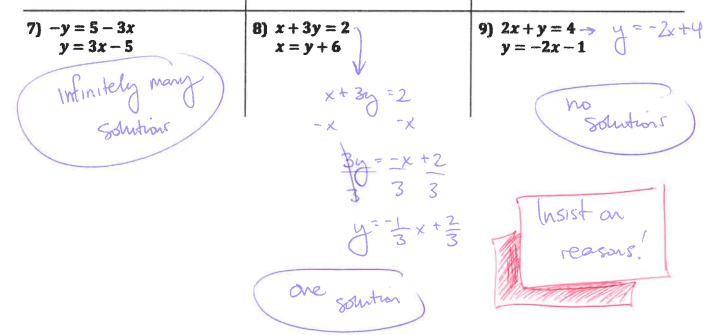 7) −y = 5 – 3x
y = 3x – 5
Infinitely many
solutions
8) x + 3y = 2
x = y + 6
x + 3y = 2
-x -x
3y/3 = -x/3 + 2/3
y = -1/3 x + 2/3
one solution
9) 2x + y = 4 → y = -2x+4
y = –2x – 1
no
solutions
Insist on
reasons!